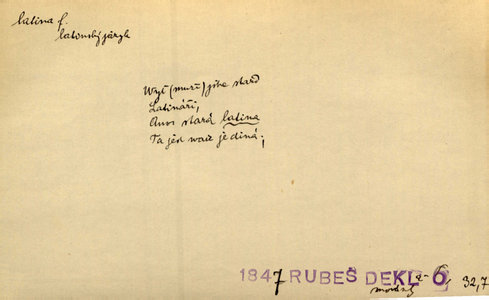 latina f.
latinský jazyk
Wyť (muži) jste staré
Latináři,
Ano stará latina
Ta jest wаše jediná;
1847 RUBEŠ DEKL 6, 32,7